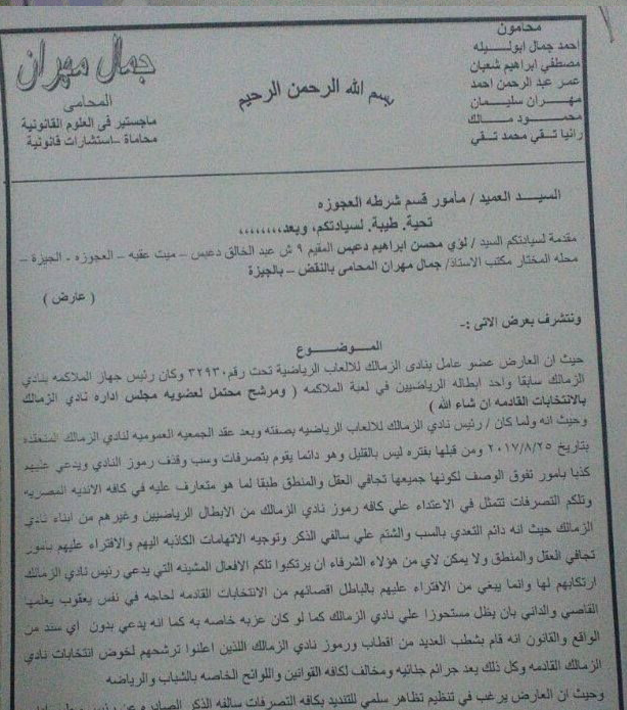 محامون
احمد جمال ابوليله
مصطفي ابراهيم شعبان
عمر عبد الرحمن احمد
مهران سليمان
محمود مالك
رانيا تقي محمد تقي
بسم الله الرحمن الرحيم
جمال مهران
المحامى
ماجستير فى العلوم القانونية
محاماة -استشارات قانونية
السيد العميد / مأمور قسم شرطه العجوزه
تحية. طيبة. لسيادتكم، وبعد،،،،،،،،
مقدمة لسيادتكم السيد / لؤي محسن ابراهيم دعبس المقيم ٩ ش عبد الخالق دعبس – ميت عقبه – العجوزه - الجيزة –
محله المختار مكتب الاستاذ/ جمال مهران المحامى بالنقض – بالجيزة
( عارض )
ونتشرف بعرض الاتى :-
الموضوع
حيث ان العارض عضو عامل بنادى الزمالك للالعاب الرياضية تحت رقم ٣٢٩٣٠ وكان رئيس جهاز الملاكمه بنادي
الزمالك سابقا واحد ابطاله الرياضيين في لعبة الملاكمه ( ومرشح محتمل لعضويه مجلس اداره نادي الزمالك
بالانتخابات القادمه ان شاء الله )
وحيث انه ولما كان / رئيس نادي الزمالك للالعاب الرياضيه بصفته وبعد عقد الجمعيه العموميه لنادي الزمالك المنعقده
بتاريخ ٢٠١٧/٨/٢٥ ومن قبلها بفتره ليس بالقليل وهو دائما يقوم بتصرفات وسب وقذف رموز النادي ويدعي عليهم
كذبا بامور تفوق الوصف لكونها جميعها تجافي العقل والمنطق طبقا لما هو متعارف عليه في كافه الانديه المصريه
وتلكم التصرفات تتمثل في الاعتداء علي كافه رموز نادي الزمالك من الابطال الرياضيين وغيرهم من ابناء نادي
الزمالك حيث انه دائم التعدي بالسب والشتم علي سالفي الذكر وتوجيه الاتهامات الكاذبه اليهم والافتراء عليهم بامور
تجافي العقل والمنطق ولا يمكن لاي من هؤلاء الشرفاء ان يرتكبوا تلكم الافعال المشينه التي يدعي رئيس نادي الزمالك
ارتكابهم لها وانما يبغي من الافتراء عليهم بالباطل اقصائهم من الانتخابات القادمه لحاجه في نفس يعقوب يعلمها
القاصي والداني بان يظل مستحوزا علي نادي الزمالك كما لو كان عزبه خاصه به كما انه يدعي بدون اي سند من
الواقع والقانون انه قام بشطب العديد من اقطاب ورموز نادي الزمالك اللذين اعلنوا ترشحهم لخوض انتخابات نادي
الزمالك القادمه وكل ذلك يعد جرائم جنائيه ومخالف لكافه القوانين واللوائح الخاصه بالشباب والرياضه
وحيث ان العارض يرغب في تنظيم تظاهر سلمي للتنديد بكافه التصرفات سالفه الذكر الصادره عن رئيس